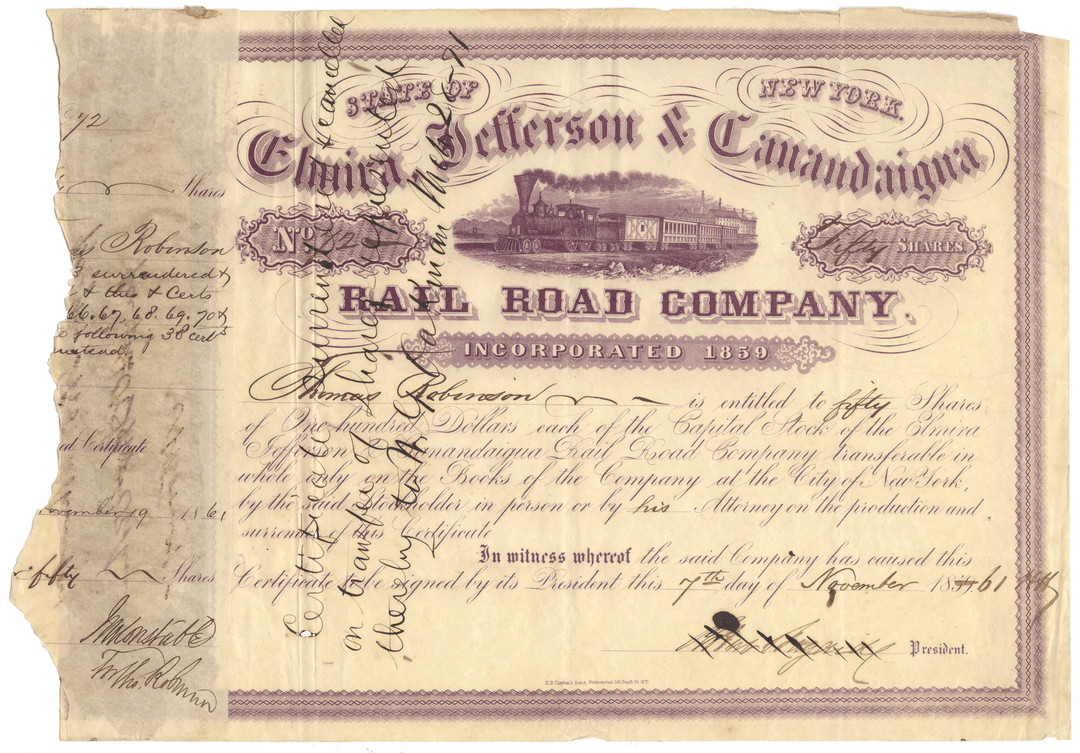 72
Shares
Robinson
3 surrendered &
& this & Certs
66. 67. 68. 69. 70 &
following 38 certs
instead
Certificate
November 19 1861
fifty Shares
For Thos. Robinson
STATE OF NEW YORK.
Elmira, Jefferson & Canandaigua
No. 72
Fifty SHARES
RAIL ROAD COMPANY.
INCORPORATED 1859
Thomas Robinson is entitled to fifty Shares
of One hundred Dollars each of the Capital Stock of the Elmira
Jefferson & Canandaigua Rail Road Company transferable in
whole only on the Books of the Company at the City of New York,
by the said Stockholder in person or by his Attorney on the production and
surrender of this Certificate
In witness whereof the said Company has caused this
Certificate to be signed by its President this 7th day of November 1861
President.
Certificate surrendered & cancelled
on transfer of shares represented
thereby to